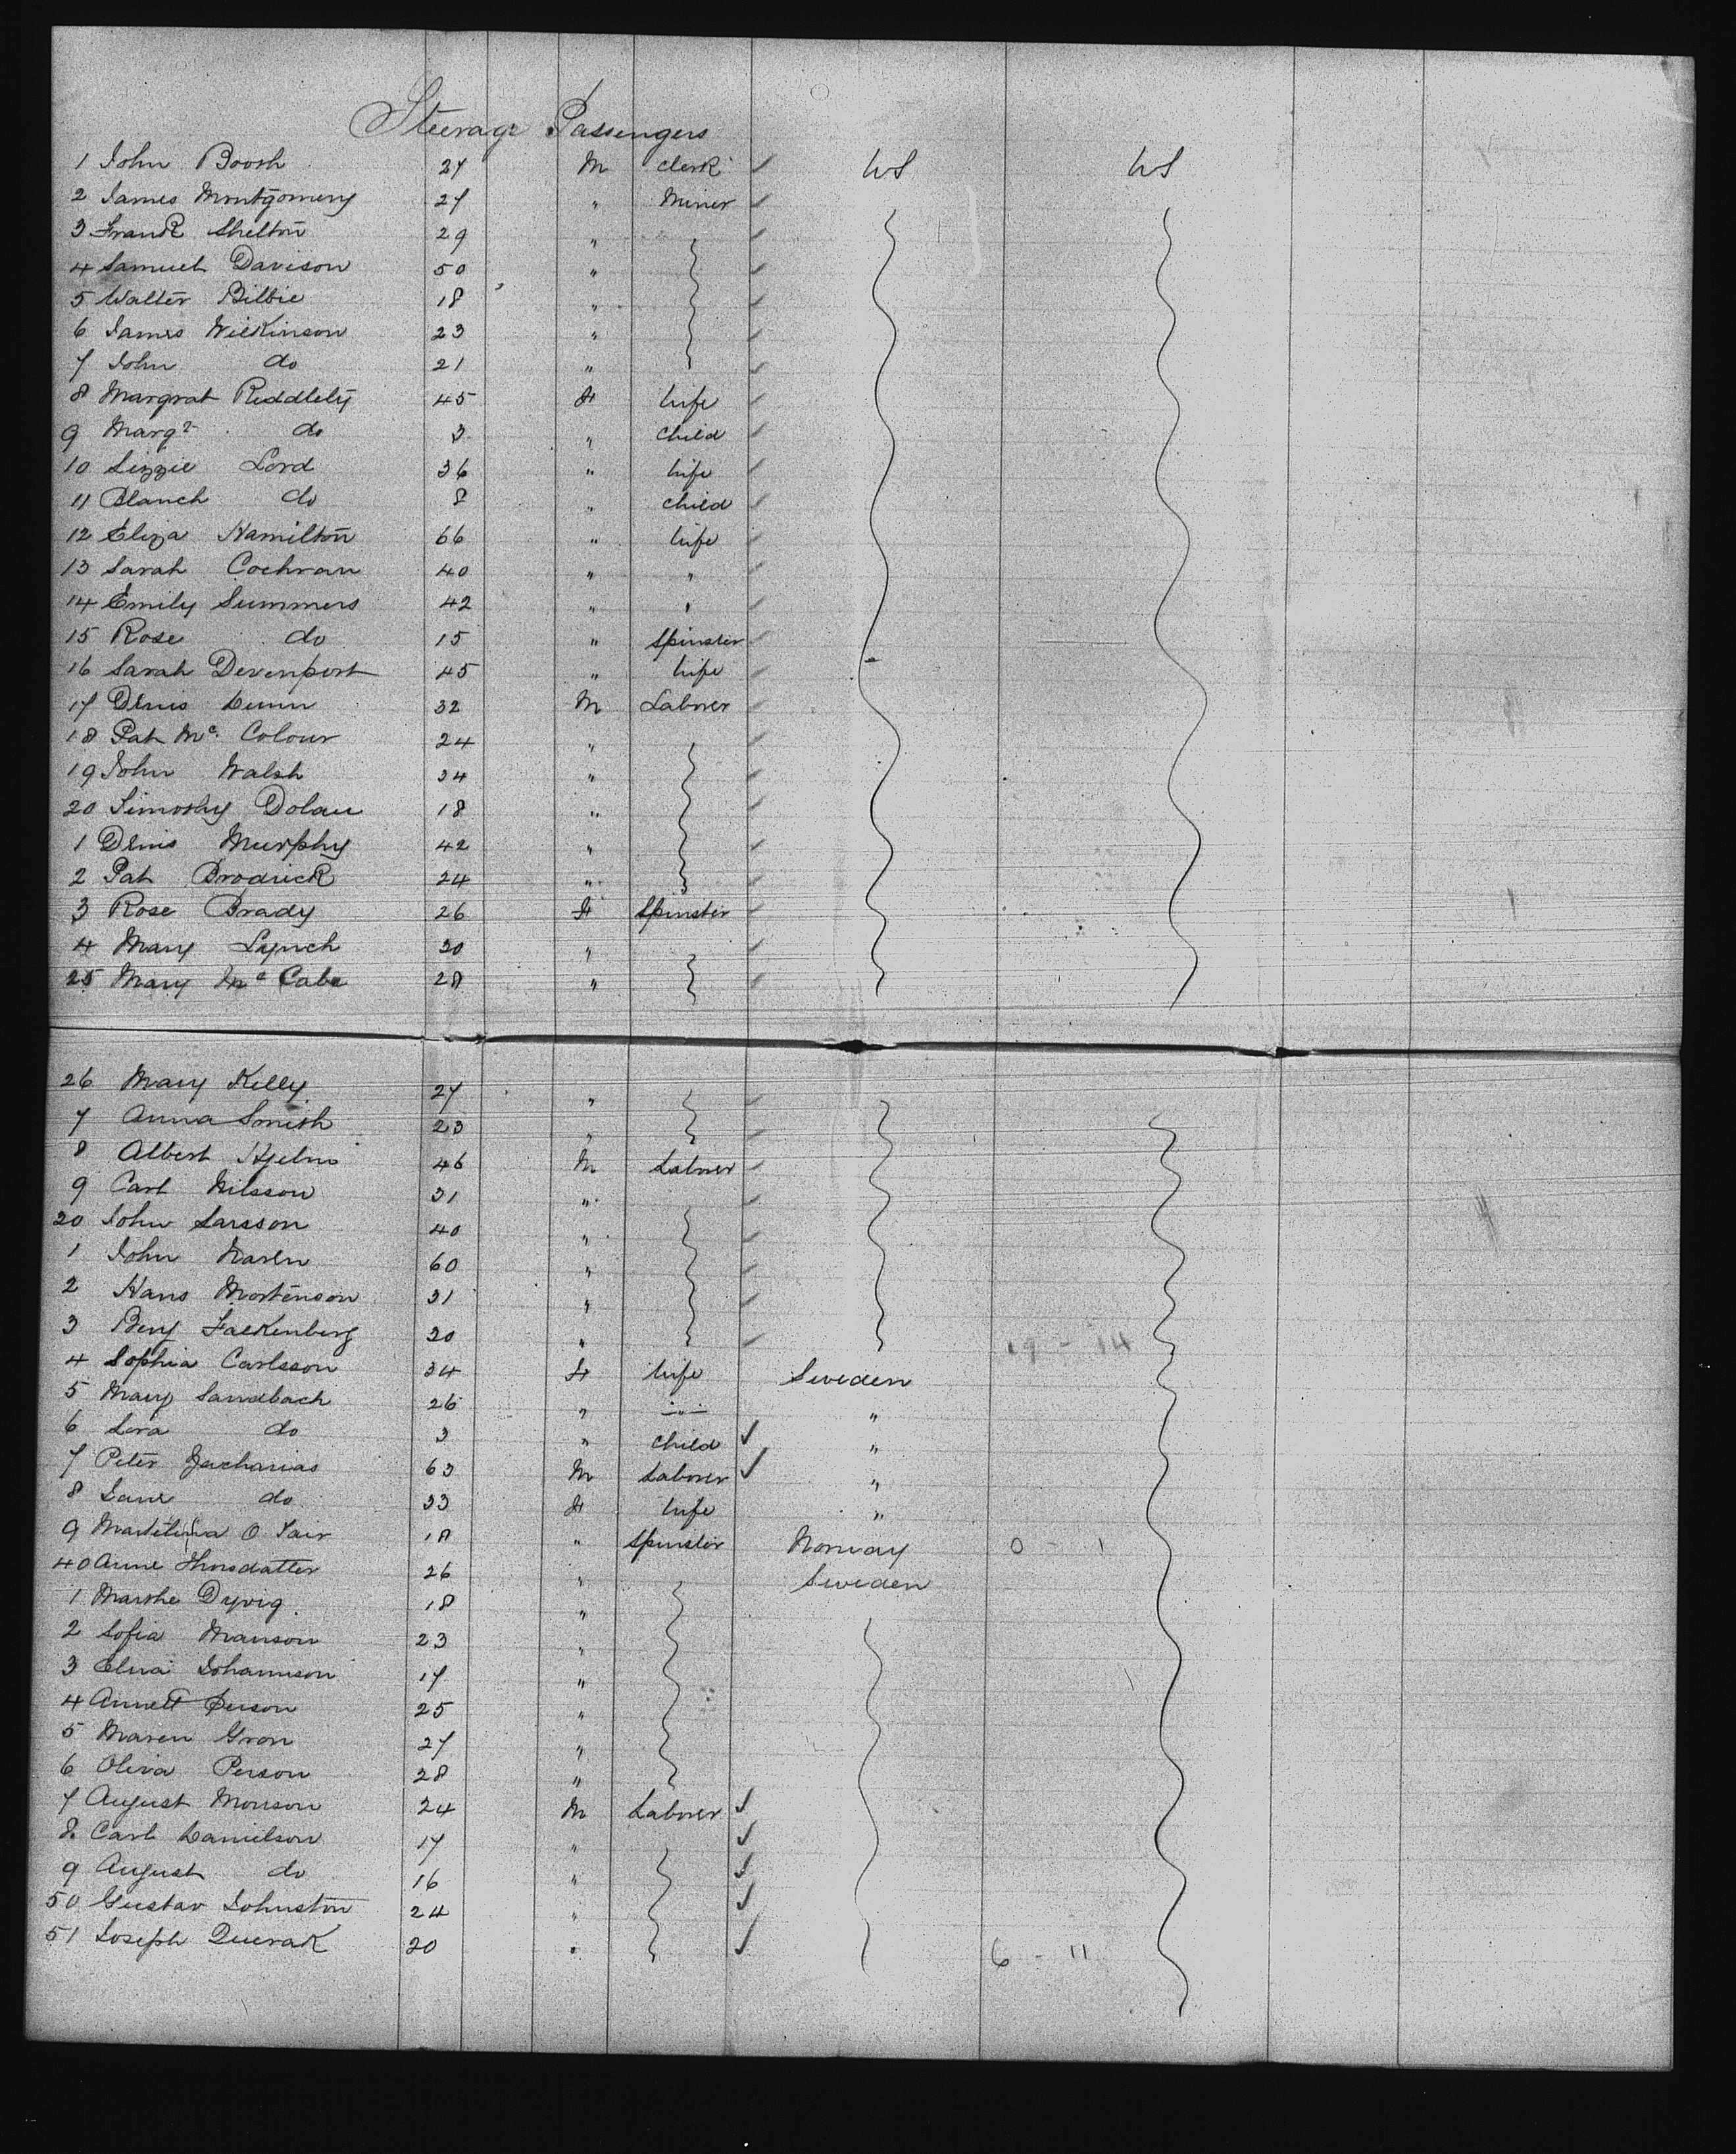 Steerage Passengers
1 John Boosh 27 M Clerk ✓ US US
2 James Montgomery 27 " Miner ✓
3 Frank Shelton 29 " ✓
4 Samuel Davison 50 " ✓
5 Walter Bilbie 18 " ✓
6 James Wilkinson 23 " ✓
7 John do 21 " ✓
8 Margrat Riddlely 45 F Wife ✓
9 Margt do 3 " Child ✓
10 Lizzie Lord 36 " Wife ✓
11 Blanch do 8 " Child ✓
12 Eliza Hamilton 66 " Wife ✓
13 Sarah Cochran 40 " " ✓
14 Emily Summers 42 " " ✓
15 Rose do 15 " Spinster ✓
16 Sarah Devenport 45 " Wife ✓
17 Denis Dunn 32 M Laborer ✓
18 Pat Mc Colour 24 " ✓
19 John Walsh 34 " ✓
20 Timothy Dolan 18 " ✓
1 Denis Murphy 42 " ✓
2 Pat Brodrick 24 " ✓
3 Rose Brady 26 F Spinster ✓
4 Mary Lynch 30 " ✓
25 Mary Mc Cabe 28 " ✓
26 Mary Kelly 27 " ✓
7 Anna Smith 23 " ✓
8 Albert Hjelm 46 M Laborer ✓
9 Carl Nilsson 31 " ✓
30 John Larsson 40 " ✓
1 John Maren 60 " ✓
2 Hans Mortenson 31 " ✓
3 Benj Falkenberg 30 " ✓ 19 - 14
4 Sophia Carlsson 34 F Wife Sweden
5 Mary Sandbach 26 " " "
6 Lora do 3 " Child ✓ "
7 Peter Zacharias 63 M Laborer ✓ "
8 Jane do 33 F Wife "
9 O 18 " Spinster Norway 0 - 1
40 Anne Thorsdatter 26 " Sweden
1 Marthe Dyvig 18 "
2 Sofia Manson 23 "
3 Elna Johannson 17 "
4 Annett Person 25 "
5 Maren Gron 27 "
6 Oliva Person 28 "
7 August Monson 24 M Laborer ✓
8 Carl Danielson 17 " ✓
9 August do 16 " ✓
50 Gustav Johnston 24 " ✓
51 Joseph Querak 20 " ✓ 6 - 11